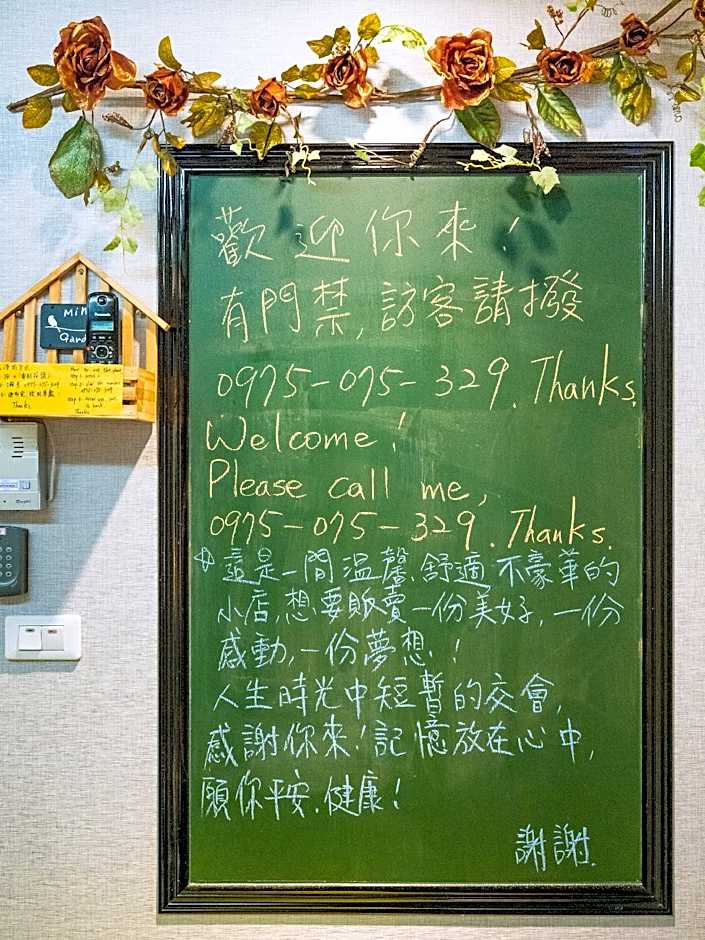 歡迎你來!
有門禁,訪客請撥
0975-075-329. Thanks.
Welcome!
Please call me,
0975-075-329. Thanks.
這是一間溫馨、舒適、不豪華的
小店,想要販賣一份美好,一份
感動,一份夢想.!
人生時光中短暫的交會,
感謝你來!記憶放在心中,
願你平安.健康!
謝謝.
Panasonic
Thanks
Thanks